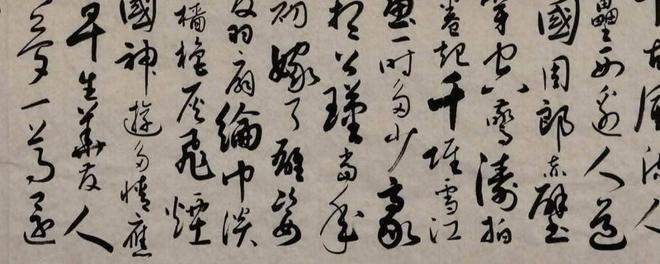 古風流人
壘西邊人道
國周郎赤壁
穿空驚濤拍
卷起千堆雪江
畫一時多少豪
想公瑾當年
初嫁了雄姿
發羽扇綸巾談
檣櫓灰飛煙
國神遊多情應
早生華髮人
夢一尊還